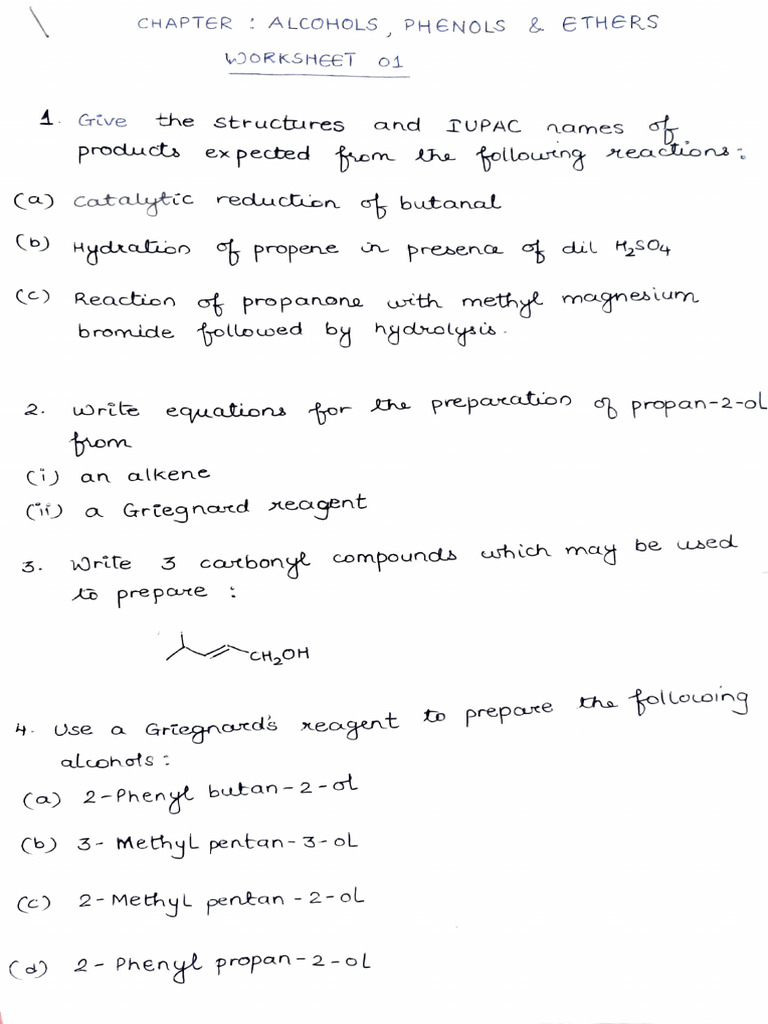 CHAPTER : ALCOHOLS, PHENOLS & ETHERS
WORKSHEET 01
1. Give the structures and IUPAC names of
products expected from the following reactions:
(a) Catalytic reduction of butanal
(b) Hydration of propene in presence of dil H₂SO₄
(c) Reaction of propanone with methyl magnesium
bromide followed by hydrolysis.
2. Write equations for the preparation of propan-2-ol
from
(i) an alkene
(ii) a Griegnard reagent
3. Write 3 carbonyl compounds which may be used
to prepare :
CH₂OH
4. Use a Griegnard's reagent to prepare the following
alcohols :
(a) 2-Phenyl butan-2-ol
(b) 3-Methyl pentan-3-ol
(c) 2-Methyl pentan-2-ol
(d) 2-Phenyl propan-2-ol